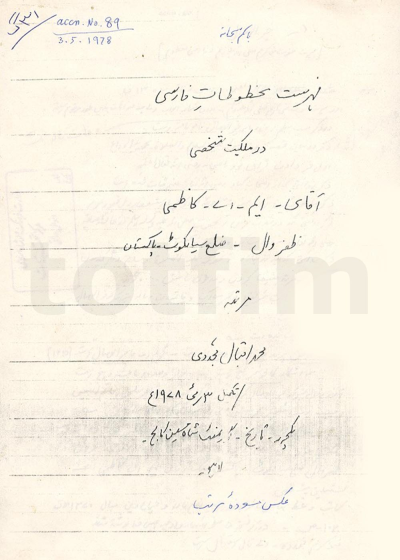 accn. No. 89
3.5.1978
باسمہ سبحانہ
فہرست مخطوطات فارسی
در ملکیت شخصی
آقای - ایم - اے - کاظمی
ظفروال - ضلع سیالکوٹ - پاکستان
مرتبہ
محمد اقبال مجددی
۳ مئی ۱۹۷۸ء
لیکچرر - تاریخ - گورنمنٹ شاہ حسین کالج -
لاہور
عکس مسودہ مرتب
totfim